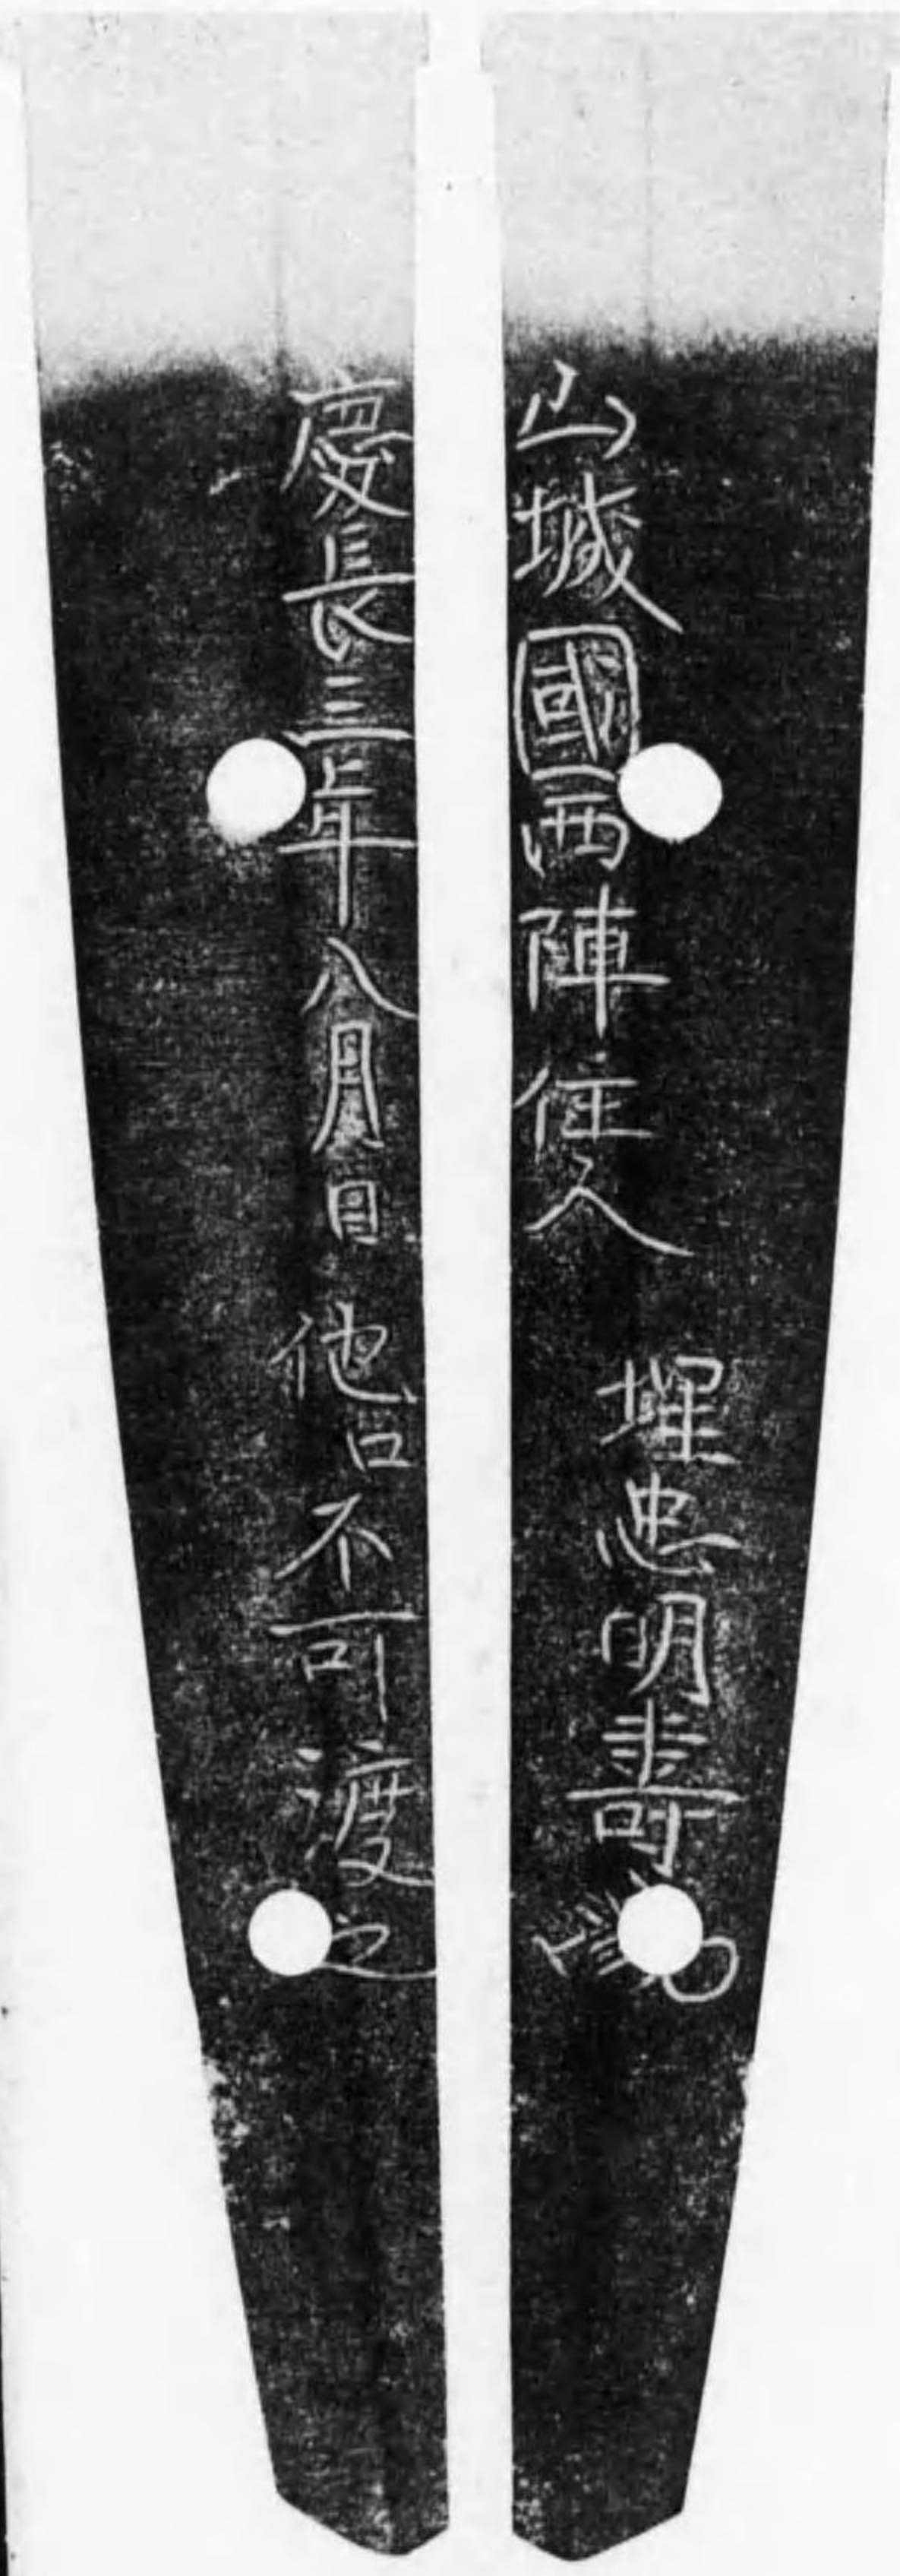 山城國西陣住人 埋忠明壽
慶長三年八月日 他江不可渡之